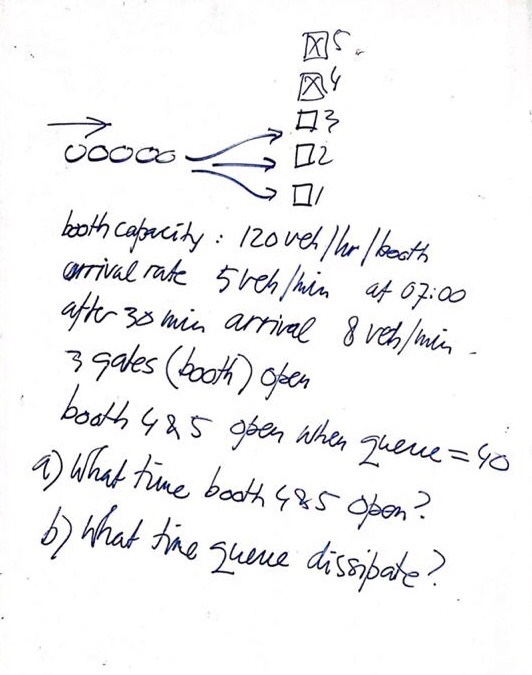 5
4
3
2
1
booth capacity : 120 veh/hr/booth
arrival rate 5 veh/min at 07:00
after 30 min arrival 8 veh/min.
3 gates (booth) open
booth 4 & 5 open when queue = 40
a) What time booth 4 & 5 open?
b) What time queue dissipate?